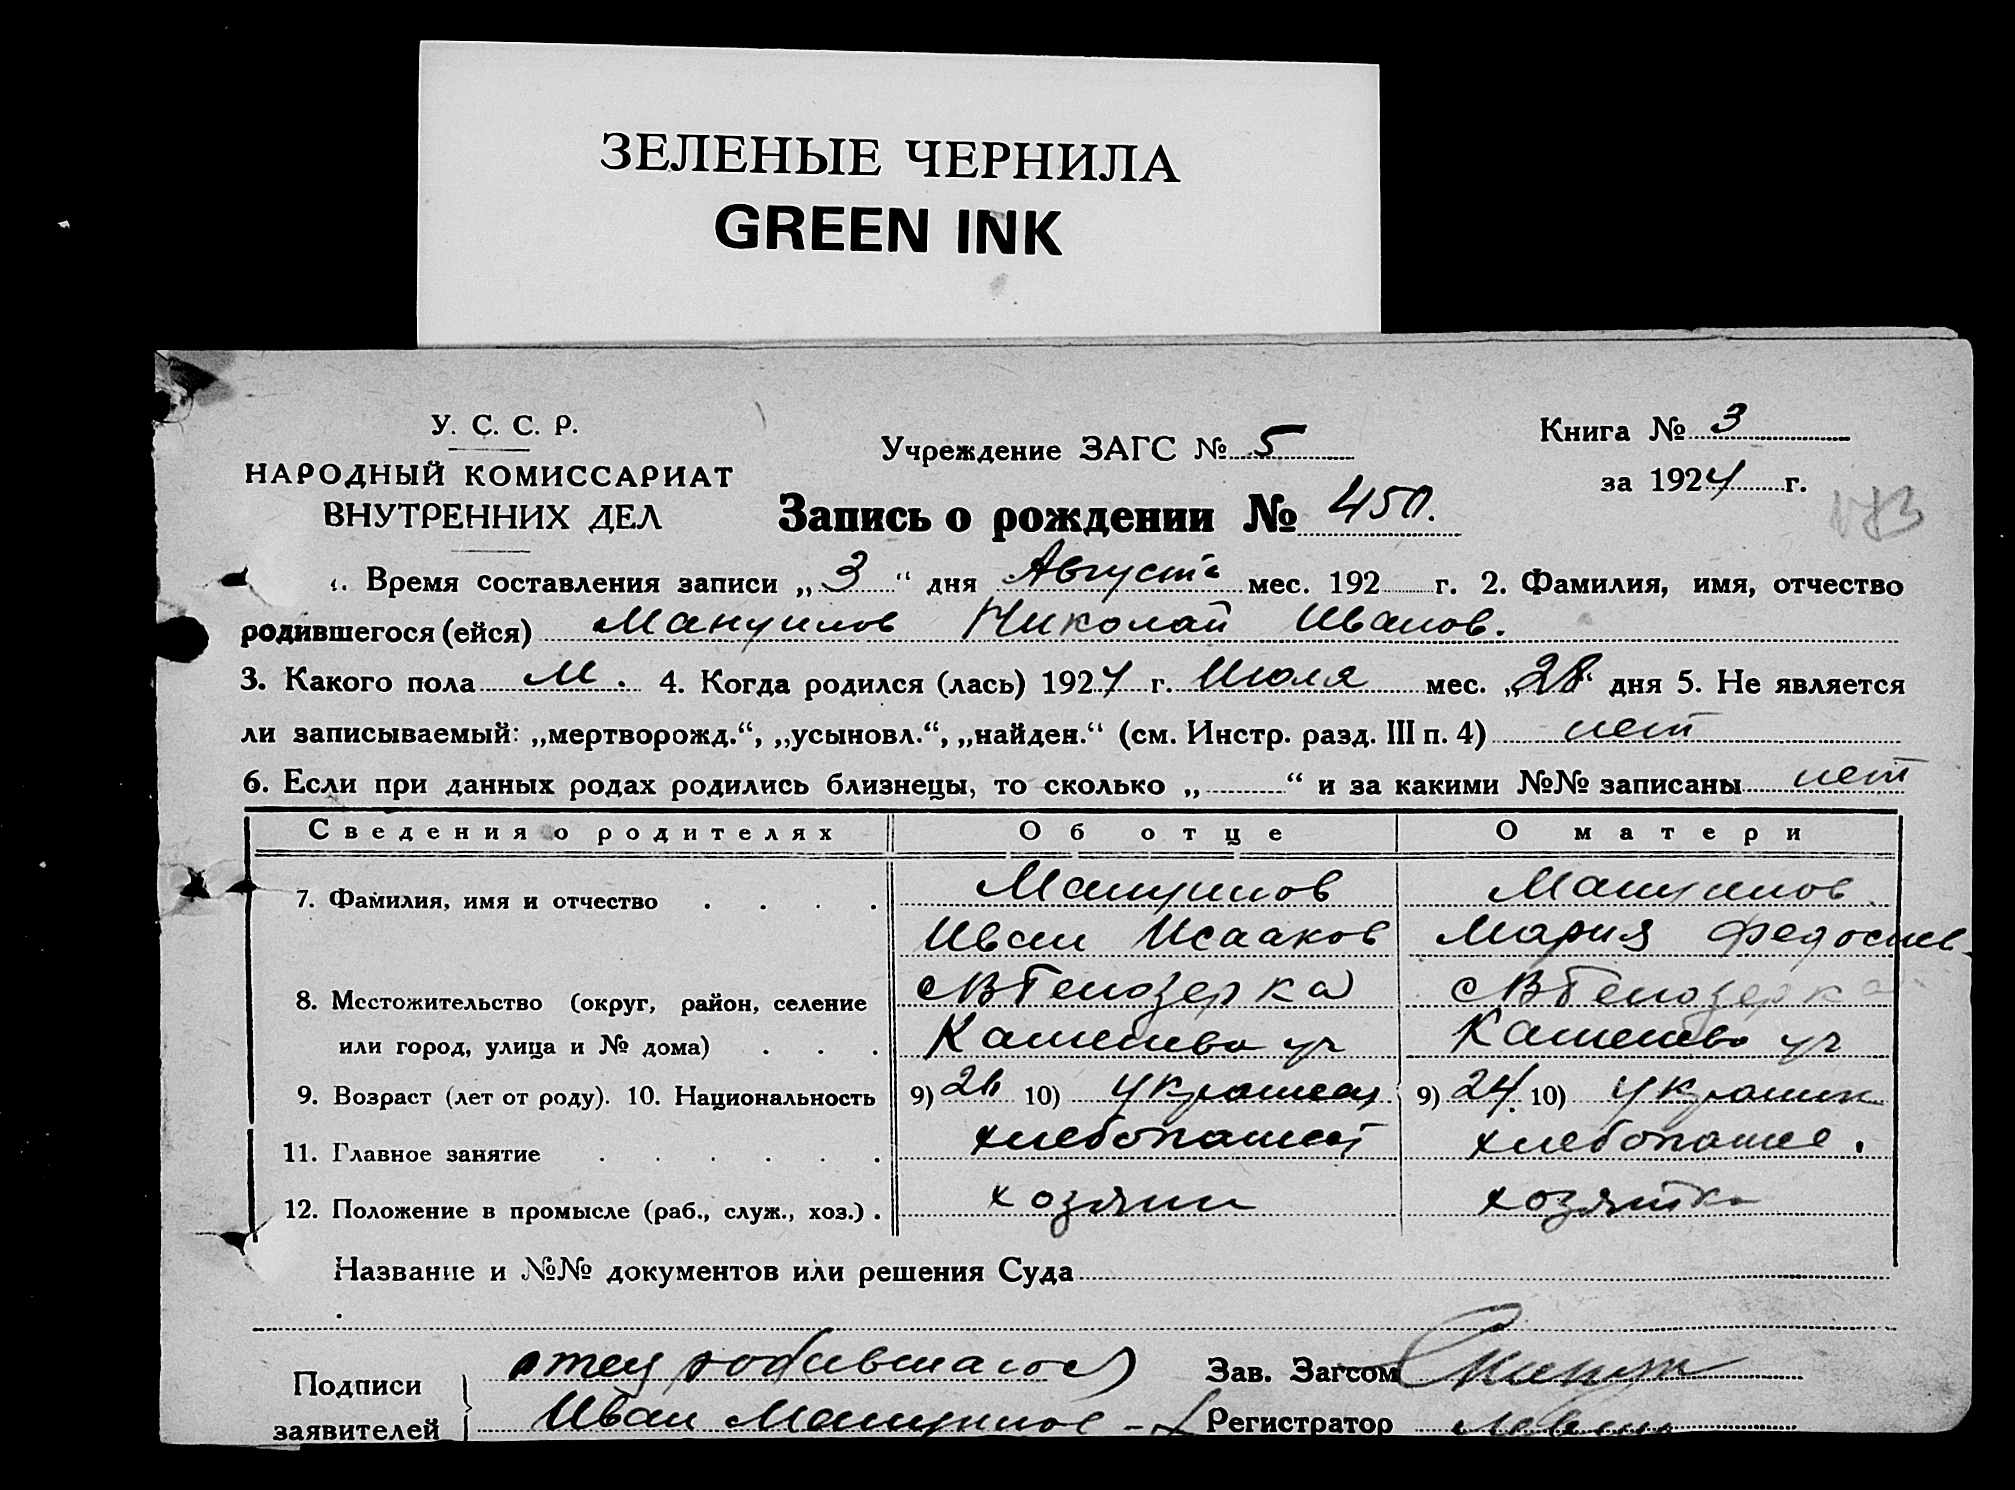 ЗЕЛЕНЫЕ ЧЕРНИЛА
GREEN INK
У. С. С. Р.
НАРОДНЫЙ КОМИССАРИАТ
ВНУТРЕННИХ ДЕЛ
Учреждение ЗАГС № 5
Запись о рождении № 450.
Книга № 3
за 1924 г.
1. Время составления записи „ 3 “ дня Августа мес. 192 г. 2. Фамилия, имя, отчество
родившегося (ейся) Мануилов Николай Иванов.
3. Какого пола М. 4. Когда родился (лась) 1924 г. Июля мес. „28 дня 5. Не является
ли записываемый: „мертворожд.“, „усыновл.“, „найден.“ (см. Инстр. разд. III п. 4) нет
6. Если при данных родах родились близнецы, то сколько „ “ и за какими №№ записаны нет
Сведения о родителях Об отце О матери
7. Фамилия, имя и отчество Мануилов Мануилов
Иван Исааков Мария
8. Местожительство (округ, район, селение Белозерка Белозерка
или город, улица и № дома)
9. Возраст (лет от роду). 10. Национальность 9) 26 10) украинец 9) 24 10) украин
11. Главное занятие хлебопашец хлебопаше.
12. Положение в промысле (раб., служ., хоз.) хозяин хозяйка
Название и №№ документов или решения Суда
Подписи отец родившагося Зав. Загсом
заявителей Иван Мануилов Регистратор